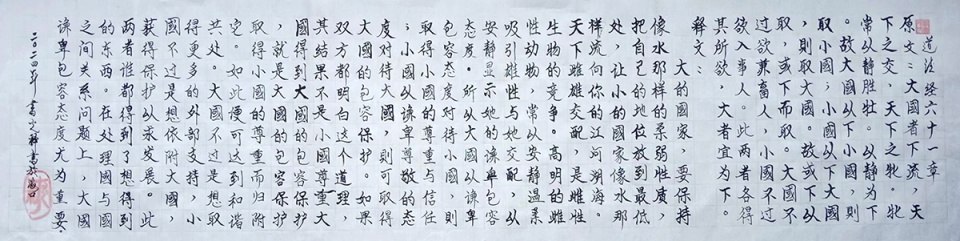 道德经六十一章
原文:大国者下流,天
下之交,天下之牝。牝
常从静胜牡。从静为下
。故大国从下小国,则
取小国;小国从下大国
,则取大国。故或下从
取,或下而取。大国不
过欲兼畜人,小国不过
欲入事人。此两者各得
其所欲,大者宜为下。
释文:
大的国家,要保持
像水那样的柔弱性质,
把自己的地位放到最低
处,让小的国家像水那
样流向你的江河湖海。
天下雌雄交配,是雌性
生物的竞争。高明的雌
性动物,常从安静温柔
吸引雄性与她交配,从
安静显示她的谦卑包容
态度。所从大国从谦卑
包容态度对待小国,则
取得小国的尊重与信任
;小国从谦卑尊敬的态
度对待大国,则可取得
大国的包容保护。如果
双方都明白这个道理,
其结果不是小国尊重大
国得到大国的包容保护
,就是大国的包容保护
取得小国的尊重而归附
定。如此便可达到和谐
共处。大国不过是想取
得更多的外部支持,小
国不过是想依附大国,
获得保护从求发展。此
两者谁都得到了想得到
的东西。在处理国与国
之间关系问题上,大国
谦卑包容态度尤为重要.
二〇二四年